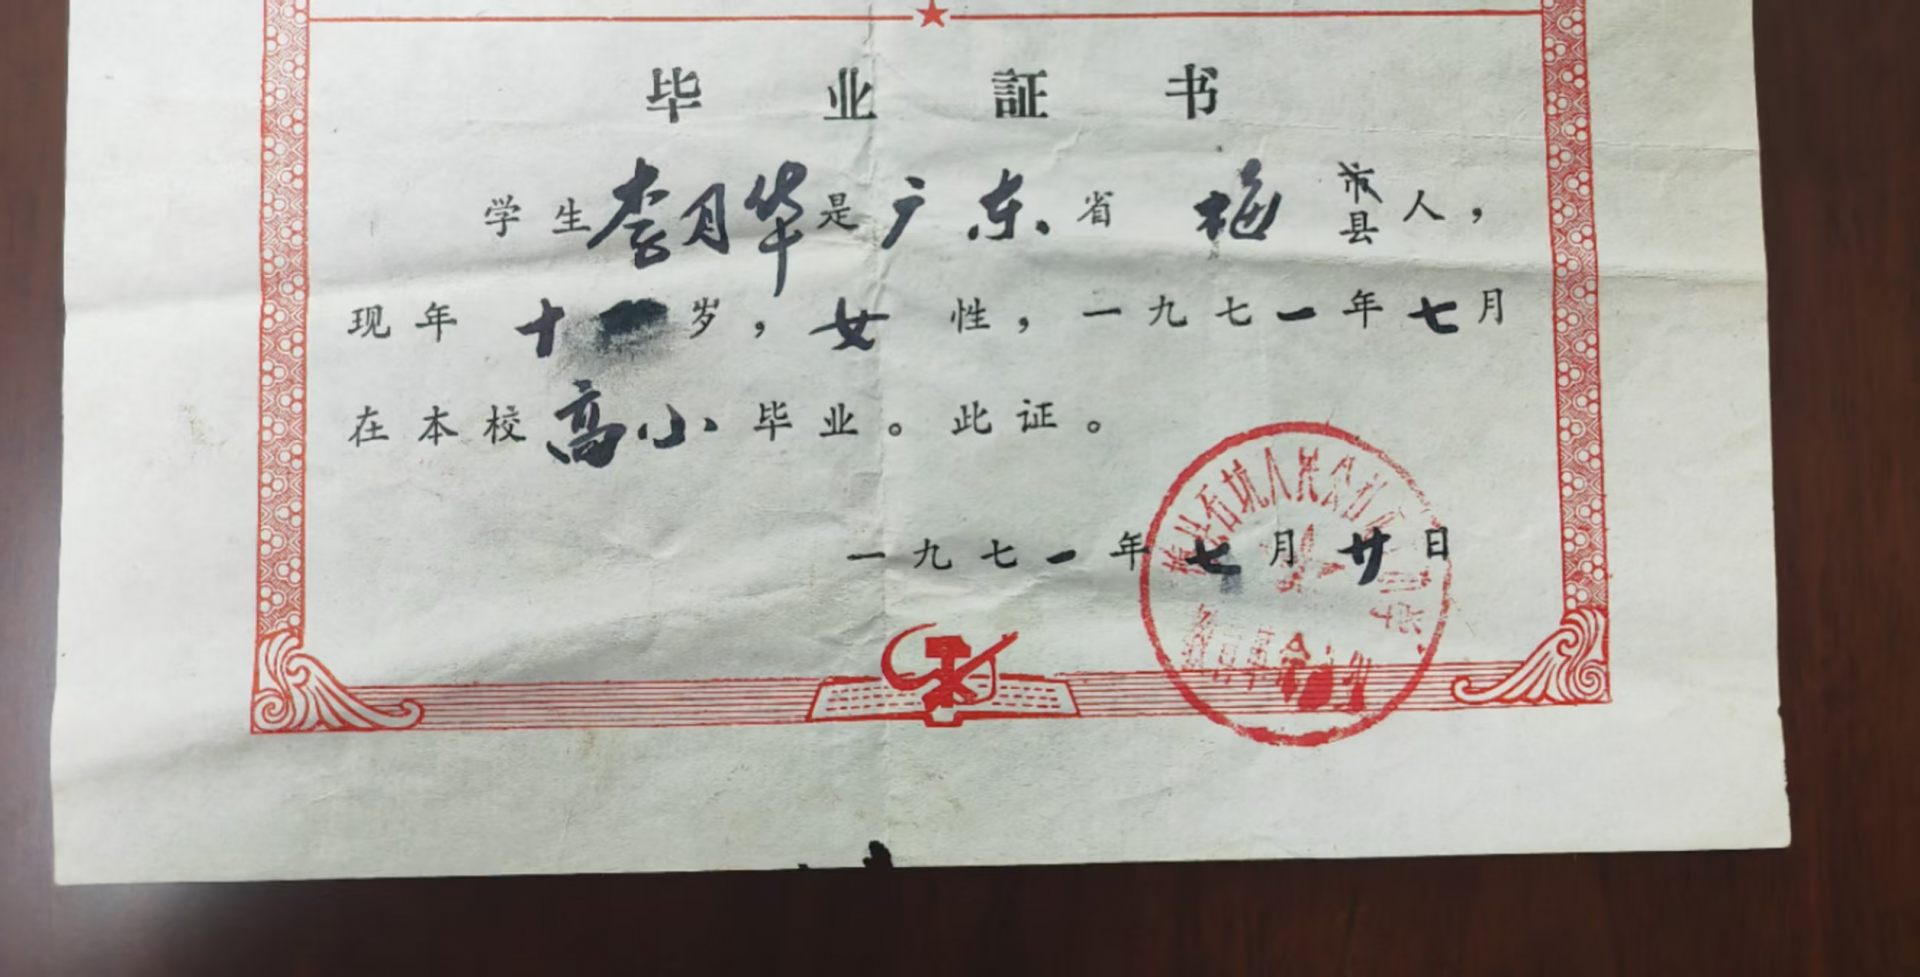 毕业証书
学生李月华是广东省梅市县人，
现年十岁，女性，一九七一年七月
在本校高小毕业。此证。
一九七一年七月廿日
梅县石坑人民公社